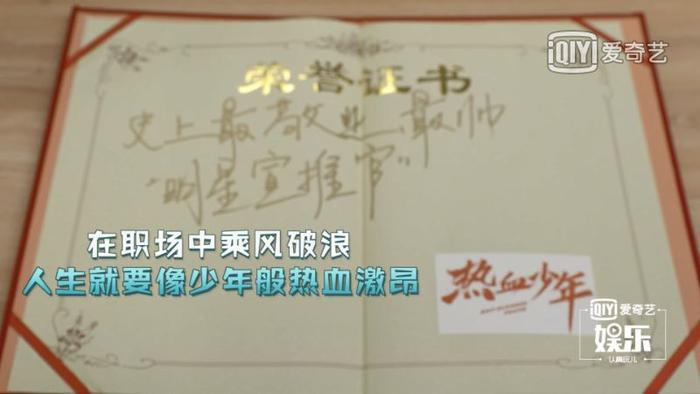 iQIYI 爱奇艺
荣誉证书
史上最敬业、最帅
“明星宣推官”
在职场中乘风破浪
人生就要像少年般热血激昂
热血少年
HOT-BLOODED YOUTH
iQIYI 爱奇艺
娱乐
认真玩儿